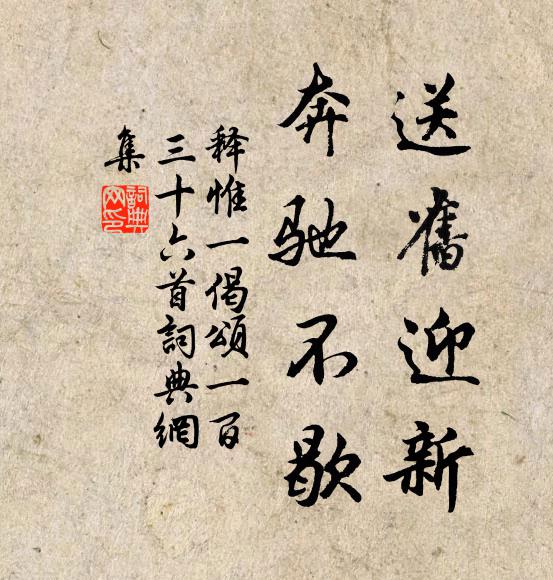 送舊迎新
奔驰不歇
释惟一偈頌一百
三十六首詞典網
集
詞典
网印